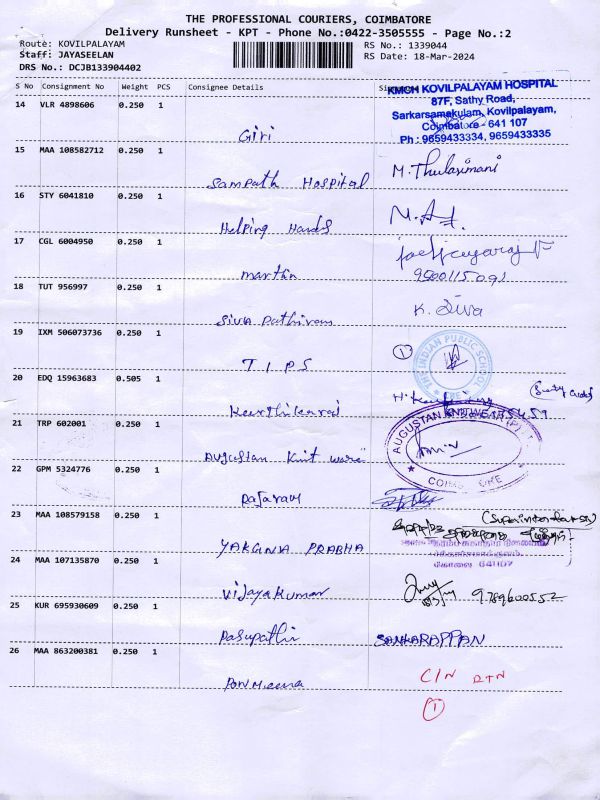 THE PROFESSIONAL COURIERS, COIMBATORE
Delivery Runsheet - KPT - Phone No.:0422-3505555 - Page No.:2
Route: KOVILPALAYAM RS No.: 1339044
Staff: JAYASEELAN RS Date: 18-Mar-2024
DRS No.: DCJB133904402
S No Consignment No Weight PCS Consignee Details
KMCH KOVILPALAYAM HOSPITAL
87F, Sathy Road,
Sarkarsamakulam, Kovilpalayam,
Coimbatore - 641 107
Ph : 9659433334, 9659433335
14 VLR 4898606 0.250 1
Giri
15 MAA 108582712 0.250 1
Sampath Hospital M. Thulasimani
16 STY 6041810 0.250 1
Helping Hands
17 CGL 6004950 0.250 1
Martin
18 TUT 956997 0.250 1
Siva Pathiram K. Siva
19 IXM 506073736 0.250 1
TIPS 1
THE INDIAN PUBLIC SCHOOL
20 EDQ 15963683 0.505 1
21 TRP 602001 0.250 1
Augustan Knit ware
AUGUSTAN KNITWEAR (P) LT
22 GPM 5324776 0.250 1
Rajaram
23 MAA 108579158 0.250 1
YAKGNA PRABHA
641107
24 MAA 107135870 0.250 1
Vijayakumar 9789600552
25 KUR 695930609 0.250 1
Pasupathi SANKARAPPAN
26 MAA 863200381 0.250 1
C/N RTN
1